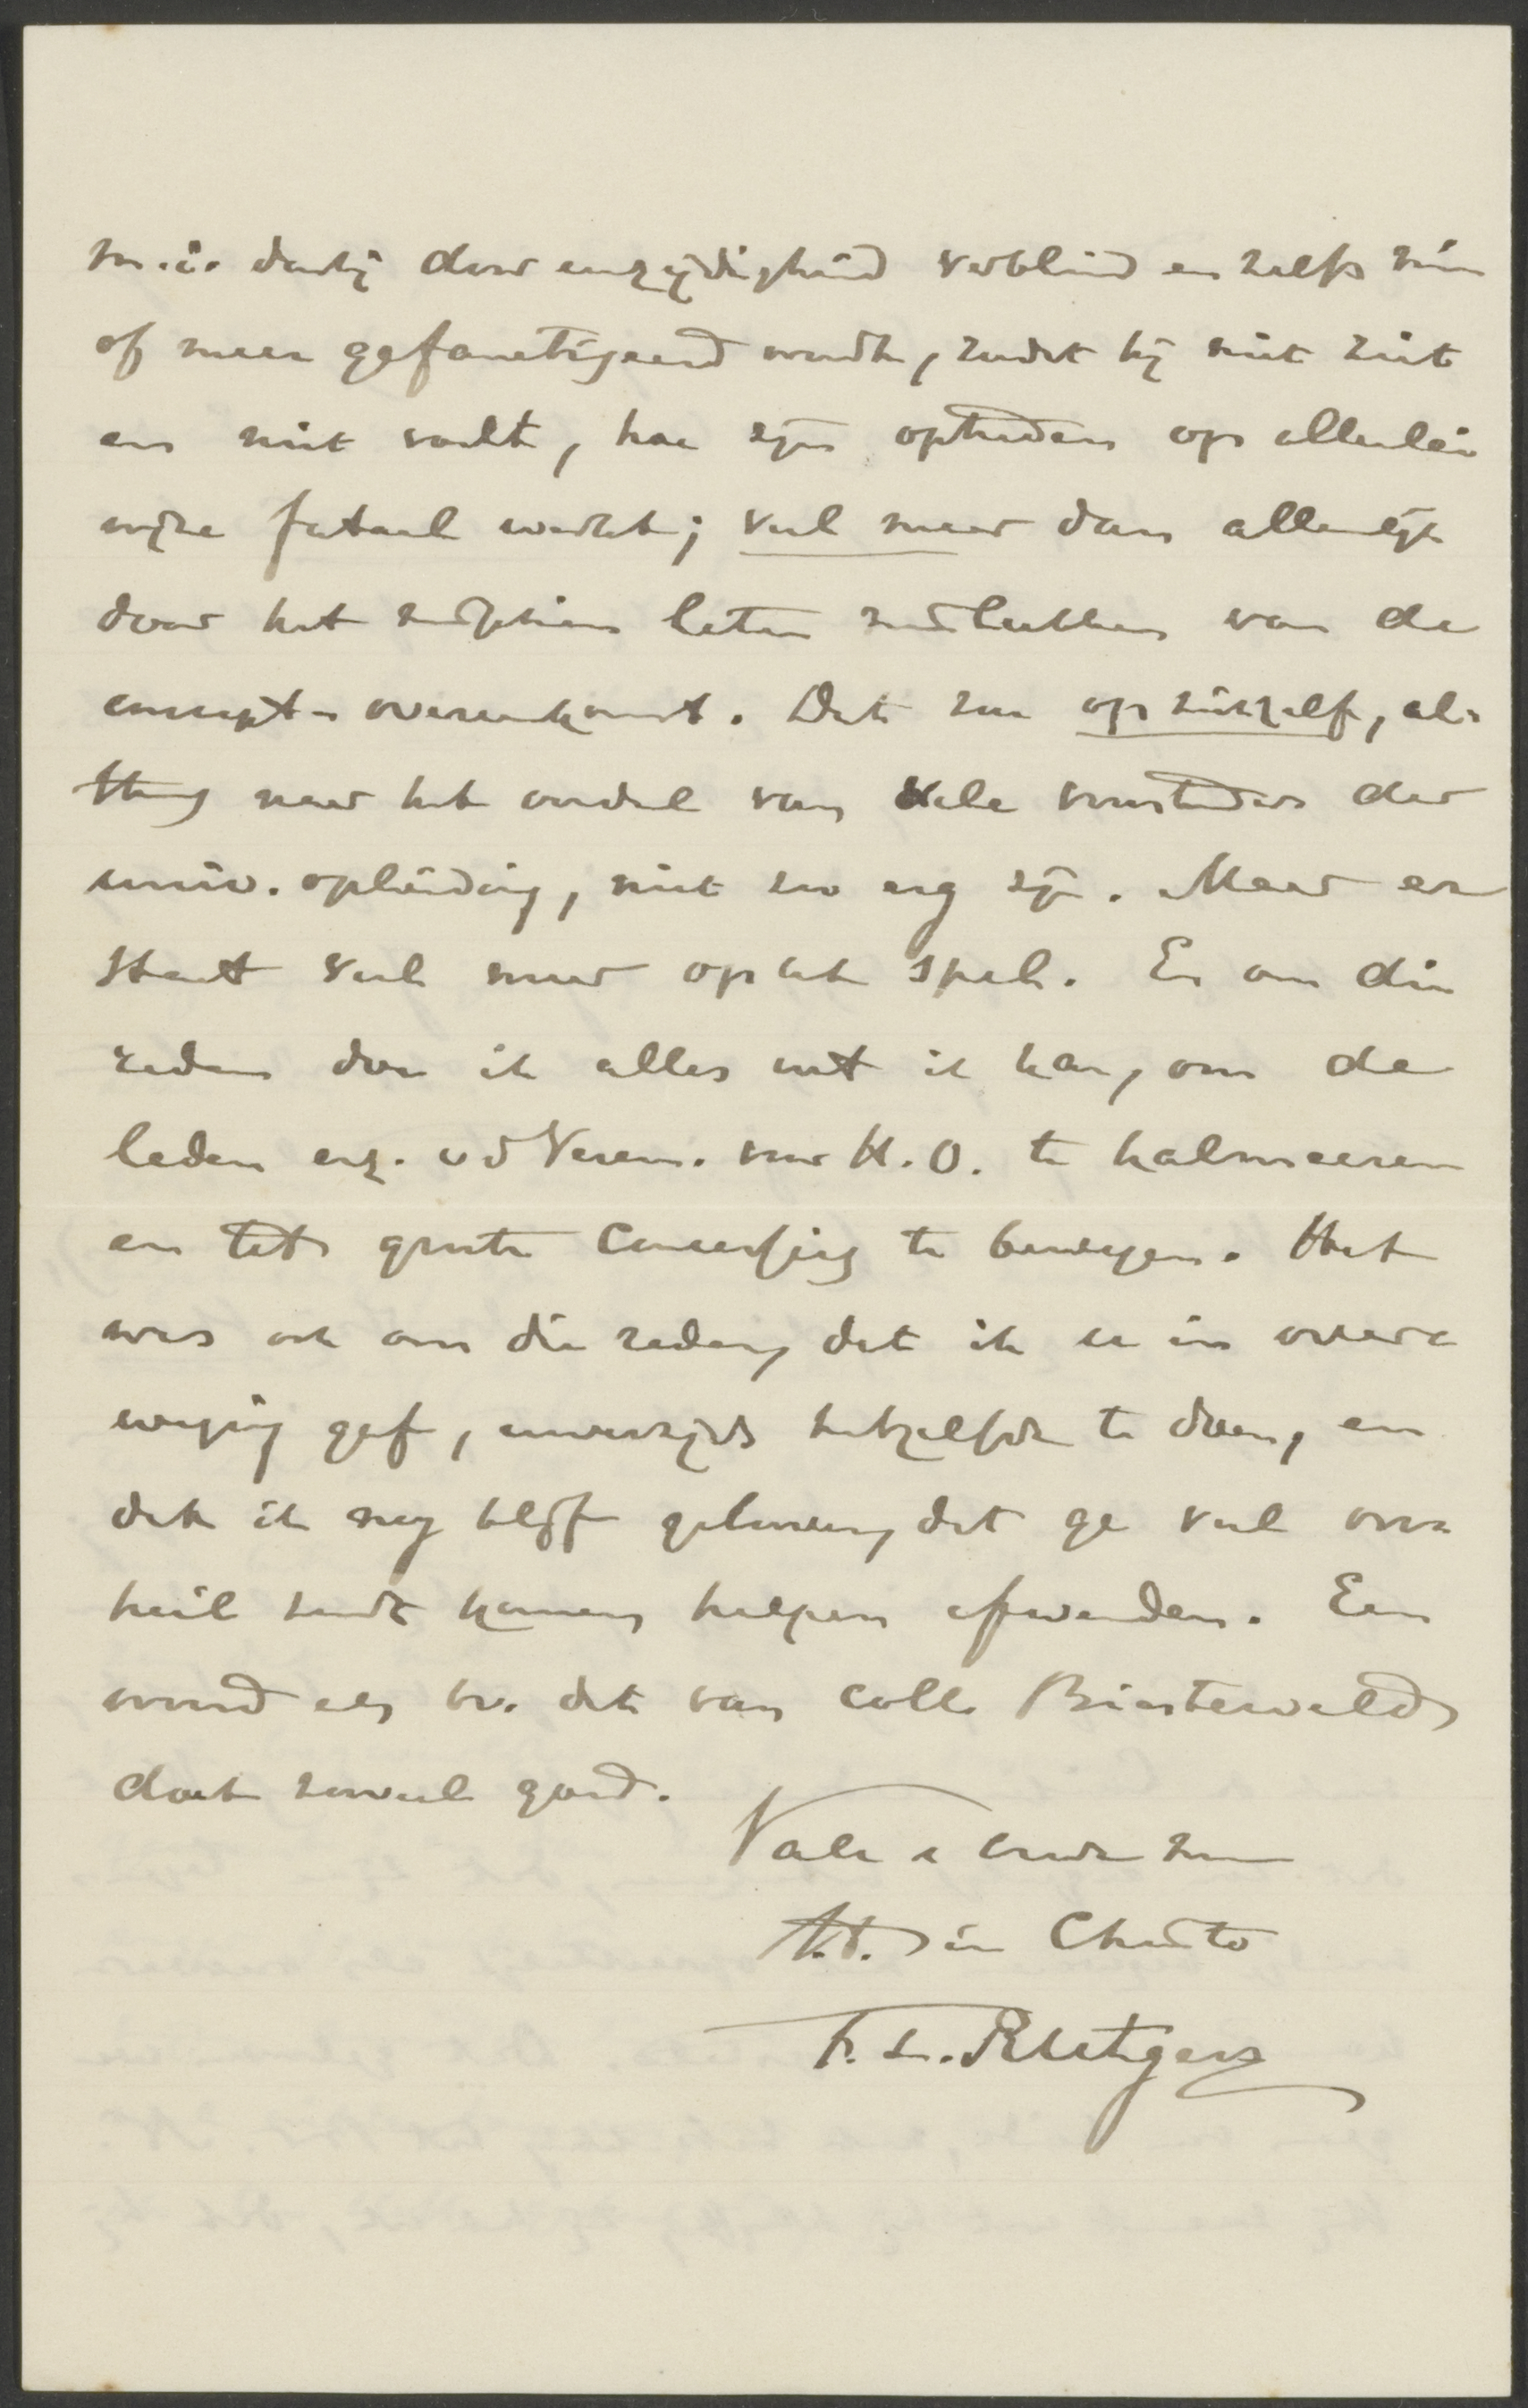 m.i. daarbij door eenzijdigheid verblind en zelfs min
of meer gefanatiseerd wordt, zoodat hij niet ziet
en niet voelt, hoe zijn optreden op allerlei
wijze fataal werkt; veel meer dan alleenlijk
door het misschien laten mislukken van de
concept-overeenkomst. Dat zou op zichzelf, al-
thans naar het oordeel van vele voorstanders der
univ. opleiding, niet zoo erg zijn. Maar er
staat veel meer op het spel. En om die
reden doe ik alles wat ik kan, om de
leden enz. v d Vereen. voor H.O. te kalmeeren
en tot groote concessies te bewegen. Het
was ook om die reden, dat ik u in overe
weging gaf, uwerzijds hetzelfde te doen, en
dat ik nog blijf gelooven, dat ge veel onn
heil zoudt kunnen helpen afwenden. Een
woord als bv. dat van coll. Biesterveld
doet zooveel goed.
Vale &
t.t. in Christo
F. L. Rutgers